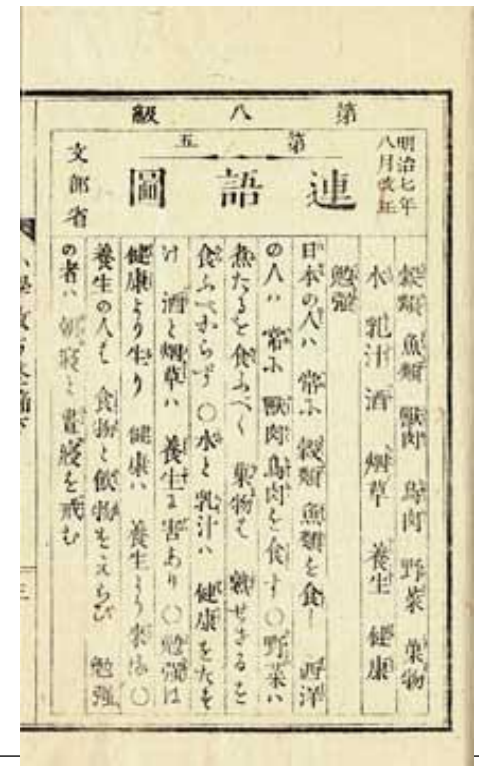 第八級
第五
連語圖
明治七年
八月改正
文部省
穀類 魚類 獸肉 鳥肉 野菜 菓物
水 乳汁 酒 烟草 養生 健康
勉強
日本の人ハ 常ふ 穀類 魚類を食し 西洋
の人ハ 常ふ 獸肉 鳥肉を食す ○野菜ハ
煮たるを食ふべく 菓物も 熟せざるを
食ふべからず ○水と 乳汁ハ 健康をたも
け 酒と烟草ハ 養生に害あり ○勉強は
健康より生り 健康ハ 養生より来る ○
養生の人も 食物と飲物をえらび 勉強
の者ハ 朝寝と晝寝を戒む